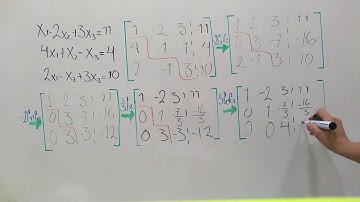 x₁-2x₂+3x₃=11
4x₁+x₂-x₃=4
2x₁-x₂+3x₃=10
1 -2 3 ¦ 11
4 1 -1 ¦ 4
2 -1 3 ¦ 10
1 -2 3 ¦ 11
0 3 -7 ¦ -16
2 -1 3 ¦ 10
1 -2 3 ¦ 11
0 3 -7 ¦ -16
0 3 -3 ¦ -12
1 -2 3 ¦ 11
0 1 -7/3 ¦ -16/3
0 3 -3 ¦ -12
1 -2 3 ¦ 11
0 1 -7/3 ¦ -16/3
0 0 4 ¦